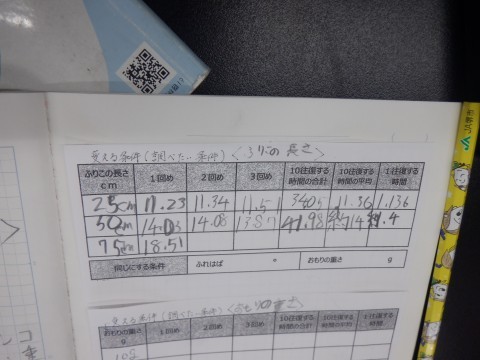 変える条件(調べたい条件)〈ふりこの長さ〉
ふりこの長さ cm 1回め 2回め 3回め 10往復する時間の合計 10往復する時間の平均 1往復する時間
25cm 11.23 11.34 11.51 3405 11.36 1.136
50cm 14.03 14.08 1387 41.98 約14 約1.4
75cm 18.51
同じにする条件 ふれはば ° おもりの重さ g
変える条件(調べたい条件)〈おもりの重さ〉
おもりの重さ g 1回め 2回め 3回め 10往復する時間の合計 10往復する時間の平均 1往復する時間